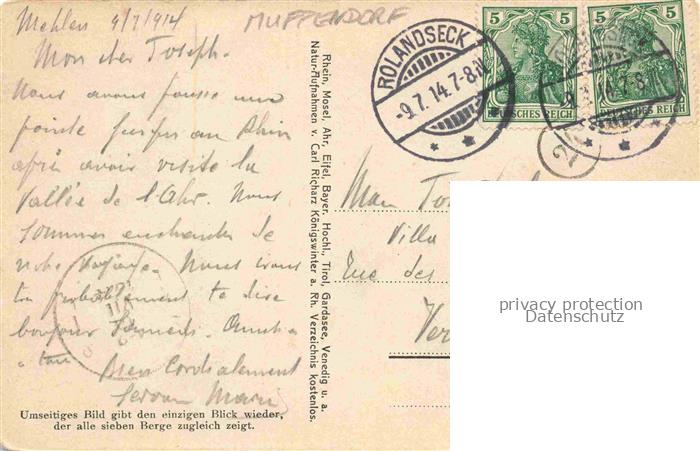 Mehlen 9/7/914
MUFFENDORF
Mon cher Joseph.
Nous avons poussé une
pointe jusqu'au Rhin
après avoir visité la
Vallée de l'Ahr. Nous
sommes enchantés de
notre voyage. Nous
te dire
bonjour
Bien Cordialement
Umseitiges Bild gibt den einzigen Blick wieder,
der alle sieben Berge zugleich zeigt.
Rhein, Mosel, Ahr, Eifel, Bayer. Hochl., Tirol, Gardasee, Venedig u. a.
Natur-Aufnahmen v. Carl Richarz Königswinter a. Rh. Verzeichnis kostenlos.
ROLANDSECK
-9.7.14.7-8.N
5 5
DEUTSCHES REICH
5 5
DEUTSCHES REICH
Villa
Rue des
Ver
privacy protection
Datenschutz